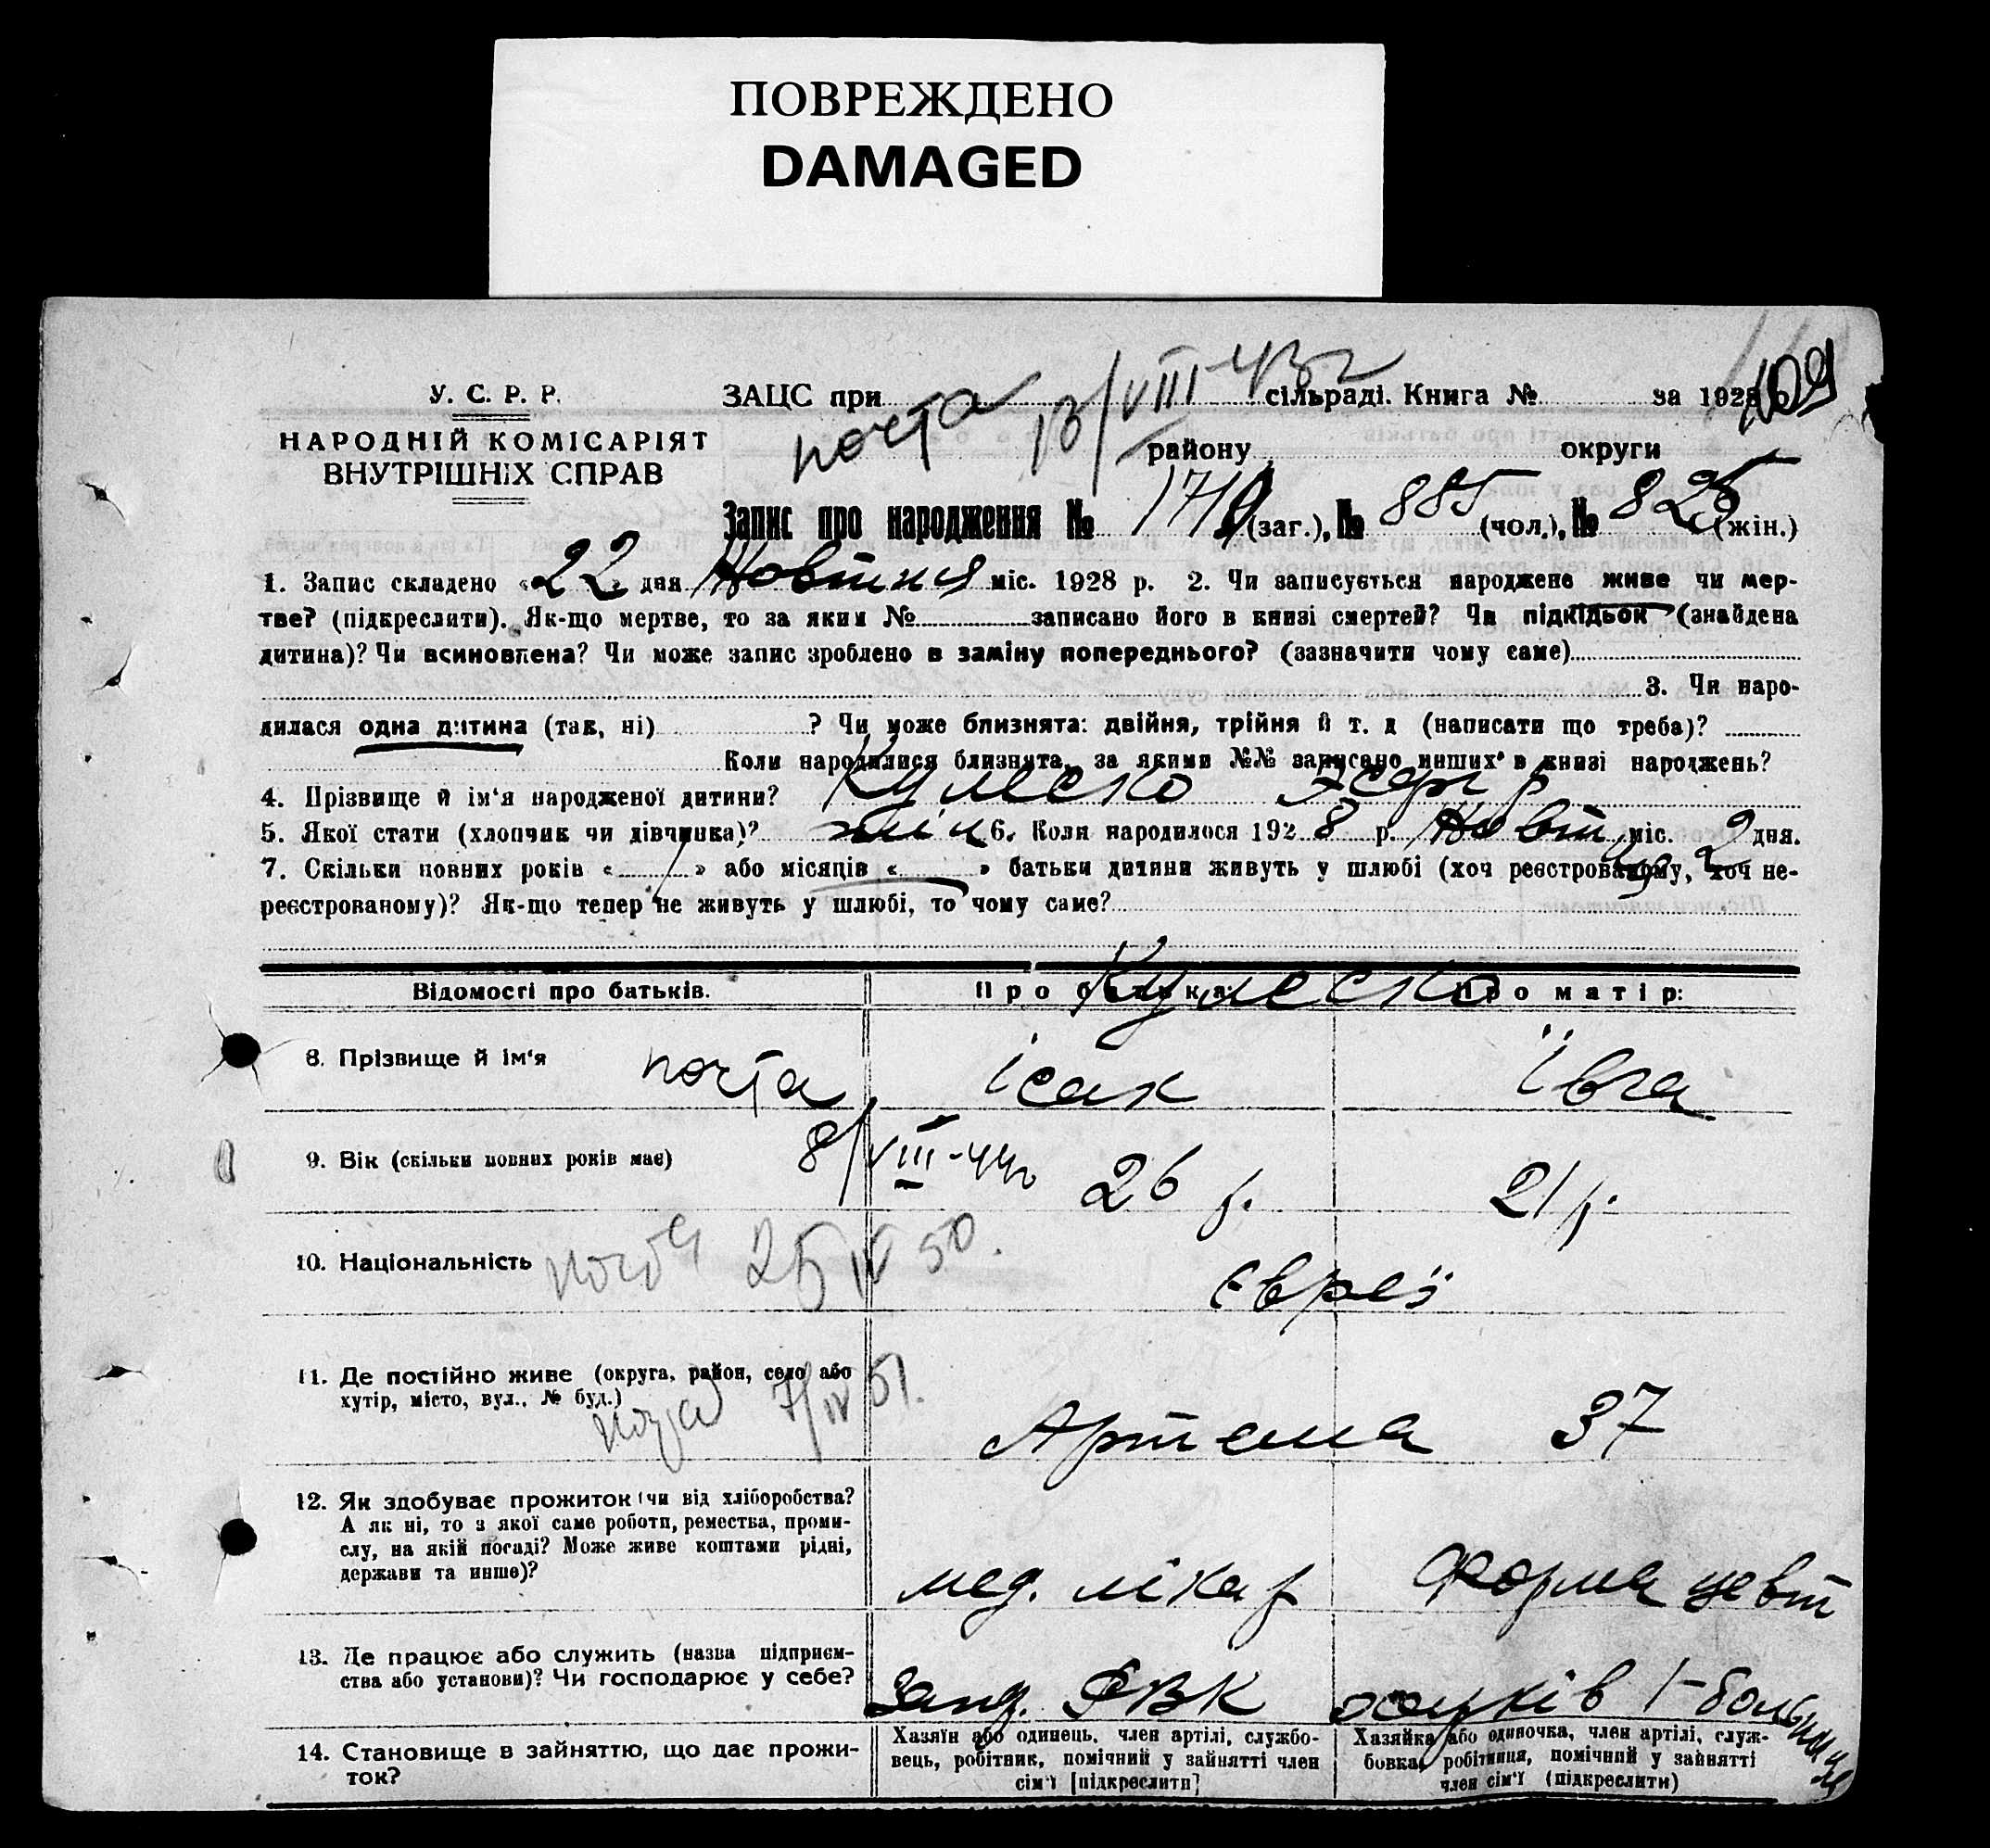 ПОВРЕЖДЕНО
DAMAGED
109
У. С. Р. Р.
НАРОДНІЙ КОМІСАРІЯТ
ВНУТРІШНІХ СПРАВ
ЗАЦС при сільраді. Книга № за 1928
почта 13/VIII 43г
району округи
Запис про народження № 1710 (заг.), № 885 (чол.), № 825 (жін.)
1. Запис складено «22» дня Жовтня міс. 1928 р. 2. Чи записується народжене живе чи мер-
тве? (підкреслити). Як-що мертве, то за яким № записано його в книзі смертей? Чи підкідьок (знайдена
дитина)? Чи всиновлена? Чи може запис зроблено в заміну попереднього? (зазначити чому саме)
3. Чи наро-
дилася одна дитина (так, ні) ? Чи може близнята: двійня, трійня й т. д (написати що треба)?
Коли народилися близнята, за якими №№ записано инших в книзі народжень?
4. Прізвище й ім'я народженої дитини? Кулеско Эсфір
5. Якої стати (хлопчик чи дівчинка)? жін 6. Коли народилося 1928 р. Жовт міс. 2 дня.
7. Скільки повних років « » або місяців « » батьки дитини живуть у шлюбі (хоч реєстрованому, хоч не-
реєстрованому)? Як-що тепер не живуть у шлюбі, то чому саме?
Відомості про батьків. Про батька Про матір:
Кулеско
8. Прізвище й ім'я почта Ісак Івга
9. Вік (скільки повних років має) 8/VIII-44г 26 р. 21 р.
10. Національність 25 IV 50. Євреї
11. Де постійно живе (округа, район, село або
хутір, місто, вул., № буд.) 7/IV 51. Артема 37
12. Як здобуває прожиток (чи від хліборобства?
А як ні, то з якої саме роботи, ремества, проми-
слу, на якій посаді? Може живе коштами рідні,
держави та инше)? мед. лікар Формацевт
13. Де працює або служить (назва підприєм-
ства або установи)? Чи господарює у себе? 1-больниця
14. Становище в зайняттю, що дає прожи-
ток?
Хазяїн або одинець, член артілі, службо-
вець, робітник, помічний у зайнятті член
сім'ї [підкреслити]
Хазяйка або одиночка, член артілі, служ-
бовка, робітниця, помічний у зайнятті
член сім'ї (підкреслити)